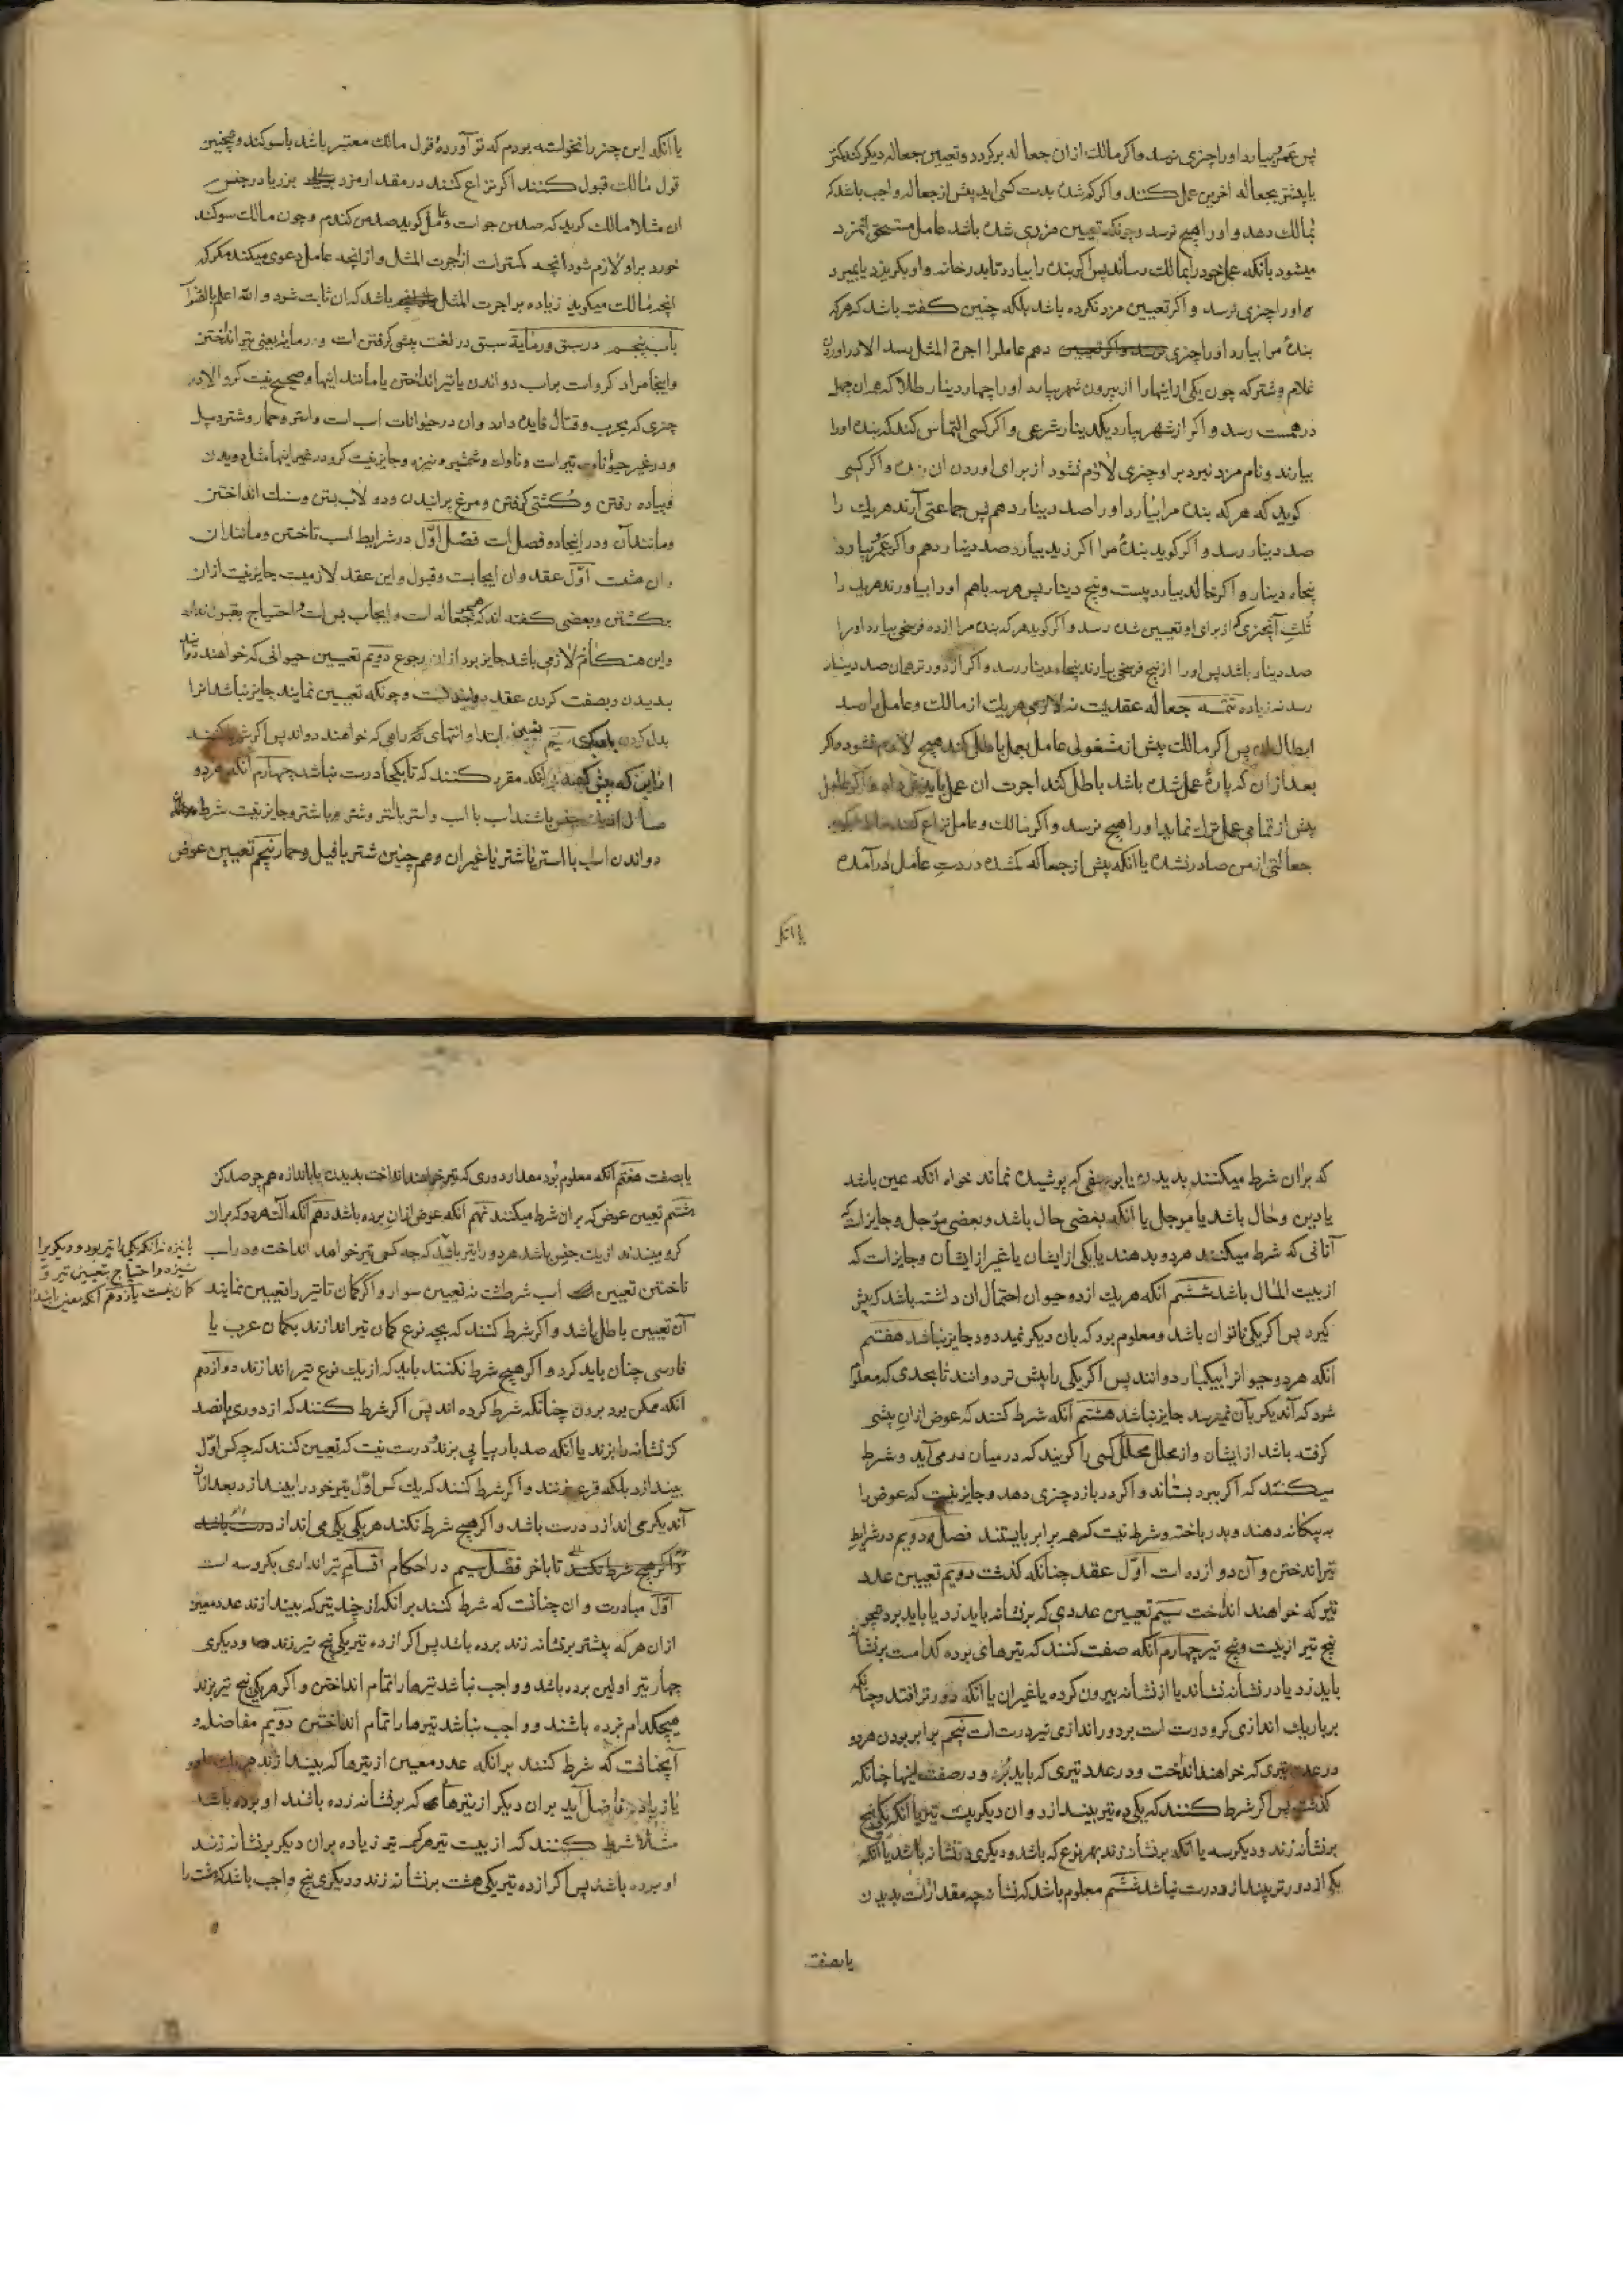 پس عمرو بیارد او را چیزی نرسد و اکر مالک ازان جعاله برکردد و تعیین جعاله دیکر کند کمتر
یا بیشتر بجعاله اخرین عمل کنند و اکر کم شده بدست کسی اید پیش از جعاله واجب باشد که
بمالک دهد و او را هیچ نرسد و چونکه تعیین مزدی شده باشد عامل مستحق انمزد
میشود بآنکه عمل خود را بمالک رساند پس اکر بنده را بیارد تا بدر خانه و او بکریزد یا بمیرد
او را چیزی نرسد و اکر تعیین مزد نکرده باشد بلکه چنین کفته باشد که هرکه
بندهٔ مرا بیارد او را چیزی دهم عاملرا اجرة المثل رسد الا در اوردن
غلام و شتر که چون یکی از اینها را از بیرون شهر بیارد او را چهار دینار طلا که هران چهل
درهمست رسد و اکر از شهر بیارد یکدینار شرعی و اکر کسی التماس کند که بنده او را
بیارند و نام مزد نبرد بر او چیزی لازم نشود از برای اوردن ان بنده و اکر کسی
کوید که هرکه بنده مرا بیارد او را صد دینار دهم پس جماعتی آرند هریک را
صد دینار رسد و اکر کوید بندهٔ مرا اکر زید بیارد صد دینار دهم و اکر عمرو بیارد
پنجاه دینار و اکر خالد بیارد بیست و پنج دینار پس هرسه باهم او را بیاورند هریک را
ثلث آنچیزی که از برای او تعیین شده رسد و اکر کوید هرکه بنده مرا از ده فرسخی بیارد او را
صد دینار باشد پس او را از پنج فرسخی بیارند پنجاه دینار رسد و اکر از دورتر همان صد دینار
رسد نه زیاده تتمه جعاله عقدیست نه لازمی هریک از مالک و عامل را رسد
ابطال ان پس اکر مالک پیش از مشغولی عامل بعمل باطل کند هیچ لازم نشود و اکر
بعد ازان که پارهٔ عمل شده باشد باطل کند اجرت ان عمل باید داد و اکر عامل
پیش از تمامی عمل ترک نماید او را هیچ نرسد و اکر مالک و عامل نزاع کنند مالک کوید
جعالتی از من صادر نشده یا آنکه پیش از جعاله کمشده در دست عامل درآمده
یا انکه
یا انکه این چیز را نخواسته بودم که تو آوردهٔ قول مالک معتبر باشد با سوکند و همچنین
قول مالک قبول کنند اکر نزاع کنند در مقدار مزد یا در جنس
ان مثلا مالک کوید که صد من جو است و عامل کوید صد من کندم و چون مالک سوکند
خورد بر او لازم شود آنچه کمترات از اجرت المثل و از انچه عامل دعوی میکند مکر که
انچه مالک میکوید زیاده بر اجرت المثل باشد که ان ثابت شود و الله اعلم بالصواب
باب پنجم در سبق و رمایة سبق در لغت پیشی کرفتن است و رمایه یعنی تیر انداختن
و اینجا مراد کرو است بر اسب دواندن یا تیر انداختن یا مانند اینها و صحیح نیست کرو الا در
چیزی که بحرب و قتال فایده دارد و ان در حیوانات اسب است و استر و حمار و شتر و پیل
و در غیر حیوانات تیر است و ناوک و شمشیر و نیزه و جایز نیست کرو در غیر اینها مثل دویدن
و پیاده رفتن و کشتی کرفتن و مرغ پرانیدن و دولاب بستن و سنک انداختن
و مانند آن و در اینجا دو فصل است فصل اول در شرایط اسب تاختن و مانند ان
و ان هشت است اول عقد و ان ایجابست و قبول و این عقد لازمیست جایز نیست ازان
برکشتن و بعضی کفته اند که جعاله است و ایجاب بس است و احتیاج بقبول ندارد
و این هنکام لازمی باشد جایز بود ازان رجوع دویم تعیین حیوانی که خواهند دوانند
بدیدن و بصفت کردن عقد و چونکه تعیین نمایند جایز نباشد انرا
بدل کردن سیم تعیین ابتدا و انتهای راهی که خواهند دواند پس اکر شرط کنند
مقرر کنند که تا بکجا درست نباشد چهارم آنکه هردو
باشند اسب با اسب و استر با استر و شتر با شتر و جایز نیست شرط
دواندن اسب با استر یا شتر یا غیر ان و هم چنین شتر با فیل و حمار پنجم تعیین عوض
که بران شرط میکنند بدیدن یا بوصفی که پوشیده نماند خواه انکه عین باشد
یا دین و حال باشد یا موجل یا آنکه بعضی حال باشد و بعضی موجل و جایز است که
آنانی که شرط میکنند هردو بدهند یا یکی از ایشان یا غیر از ایشان و جایز است که
از بیت المال باشد ششم آنکه هریک از دو حیوان احتمال ان داشته باشد که پیش
کیرد پس اکر یکی ناتوان باشد و معلوم بود که بان دیکر نمیرسد جایز نباشد هفتم
آنکه هردو حیوانرا بیکبار دوانند پس اکر یکی را پیش تر دوانند تا بحدی که معلوم
شود که آندیکر بآن نمیرسد جایز نباشد هشتم آنکه شرط کنند که عوض ازان پیشی
کرفته باشد از ایشان و از محلل محلل کسی را کویند که در میان در می آید و شرط
میکنند که اکر ببرد بستاند و اکر در بازد چیزی ندهد و جایز نیست که عوض را
به بیکانه دهند و بدر باخته و شرط نیست که همه برابر بایستند فصل دویم در شرایط
تیر انداختن و آن دوازده است اول عقد چنانکه کذشت دویم تعیین عدد
تیر که خواهند انداخت سیم تعیین عددی که بر نشانه باید زد یا باید برد همچو
پنج تیر از بیست و پنج تیر چهارم آنکه صفت کنند که تیرهای برده کدامست بر نشانه
باید زد یا در نشانه نشاند یا از نشانه بیرون کرده یا غیر ان یا آنکه دورتر افتد و چنانکه
بر باریک اندازی کرو درست است بر دور اندازی نیز درست است پنجم برابر بودن هردو
در عدد تیری که خواهند انداخت و در عدد تیری که باید برد و در صفت اینها چنانکه
کذشت پس اکر شرط کنند که یکی ده تیر بیندازد و ان دیکر بیست تیر یا آنکه یکی پنج
بر نشانه زند و دیکر سه یا انکه بر نشانه زند بهر نوع که باشد و دیکری در نشانه باشد یا آنکه
یکی از دورتر بیندازد درست نباشد ششم معلوم باشد که نشانه چه مقدار است بدیدن
یا بصفت
یا بصفت هفتم آنکه معلوم بود مقدار دوری که تیر خواهند انداخت بدیدن یا باندازه همچو صد کز
هشتم تعیین عوض که بران شرط میکنند نهم آنکه عوض ازان برده باشد دهم آنکه آلت هردو که بران
کرو میبندند از یک جنس باشد هردو را تیر باشد که چه کس تیر خواهد انداخت و در اسب
تاختن تعیین اسب شرطست نه تعیین سوار و اکر کمان تا تیر را تعیین نمایند
آن تعیین باطل باشد و اکر شرط کنند که بچه نوع کمان تیر اندازند بکمان عرب یا
فارسی چنان باید کرد و اکر هیچ شرط نکنند باید که از یک نوع تیر اندازند دوازدهم
آنکه ممکن بود بردن چنانکه شرط کرده اند پس اکر شرط کنند که از دوری پانصد
کز نشانه را بزند یا آنکه صد بار پیاپی بزند درست نیست که تعیین کنند که چه کس اول
بیندازد بلکه قرعه زنند و اکر شرط کنند که یک کس اول تیر خود را بیندازد بعد ازان
آندیکر می اندازد درست باشد و اکر هیچ شرط نکنند هر یکی یکی می اندازد درست باشد
و اکر هیچ شرط نکنند تا باخر فصل سیم در احکام اقسام تیر اندازی بکرو سه است
اول مبادرت و ان چنانست که شرط کنند بر انکه از چند تیر که بیندازند عدد معین
ازان هرکه پیشتر بر نشانه زند برده باشد پس اکر از ده تیر یکی پنج تیر زند و دیکری
چهار تیر اولین برده باشد و واجب نباشد تیرها را تمام انداختن و اکر هریکی پنج تیر بزند
هیچکدام نبرده باشند و واجب نباشد تیرها را تمام انداختن دویم مفاضله و
آنچنانست که شرط کنند بر انکه عدد معین از تیرها که بیندازند
یا زیاده فاضل آید بران دیکر از تیرهای که بر نشانه زده باشند او برده باشد
مثلا شرط کنند که از بیست تیر هرکه سه تیر زیاده بران دیکر بر نشانه زند
او برده باشد پس اکر از ده تیر یکی هشت بر نشانه زند و دیکری پنج واجب باشد که بیست را
یا نیزه نه آنکه یکی را تیر بود و دیکریرا
نیزه و احتیاج بتعیین تیر و
کمان نیست یازدهم آنکه معین باشد